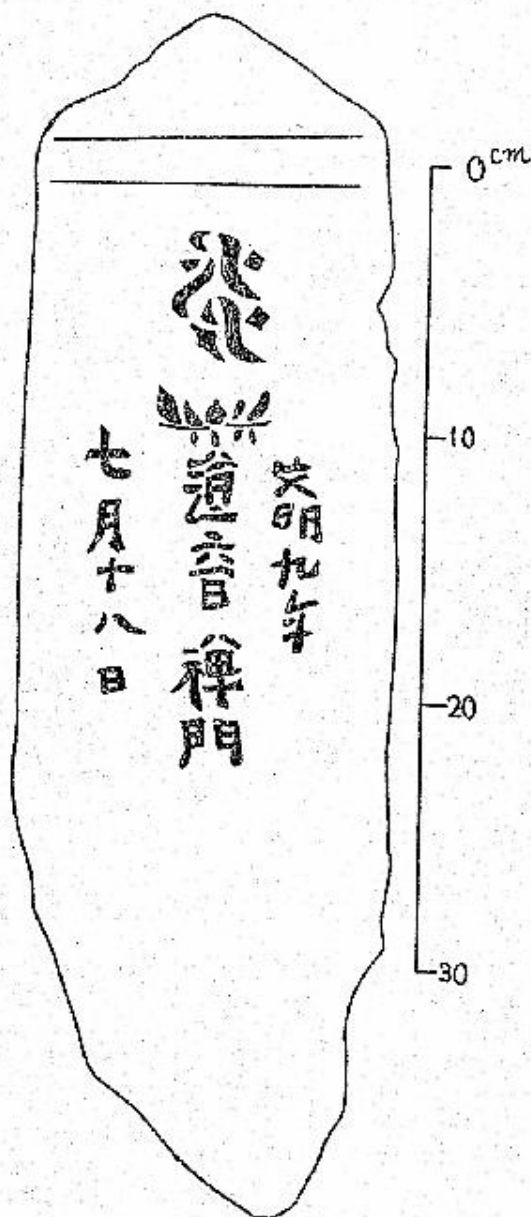 文明九年
道音禅門
七月十八日
0cm
10
20
30